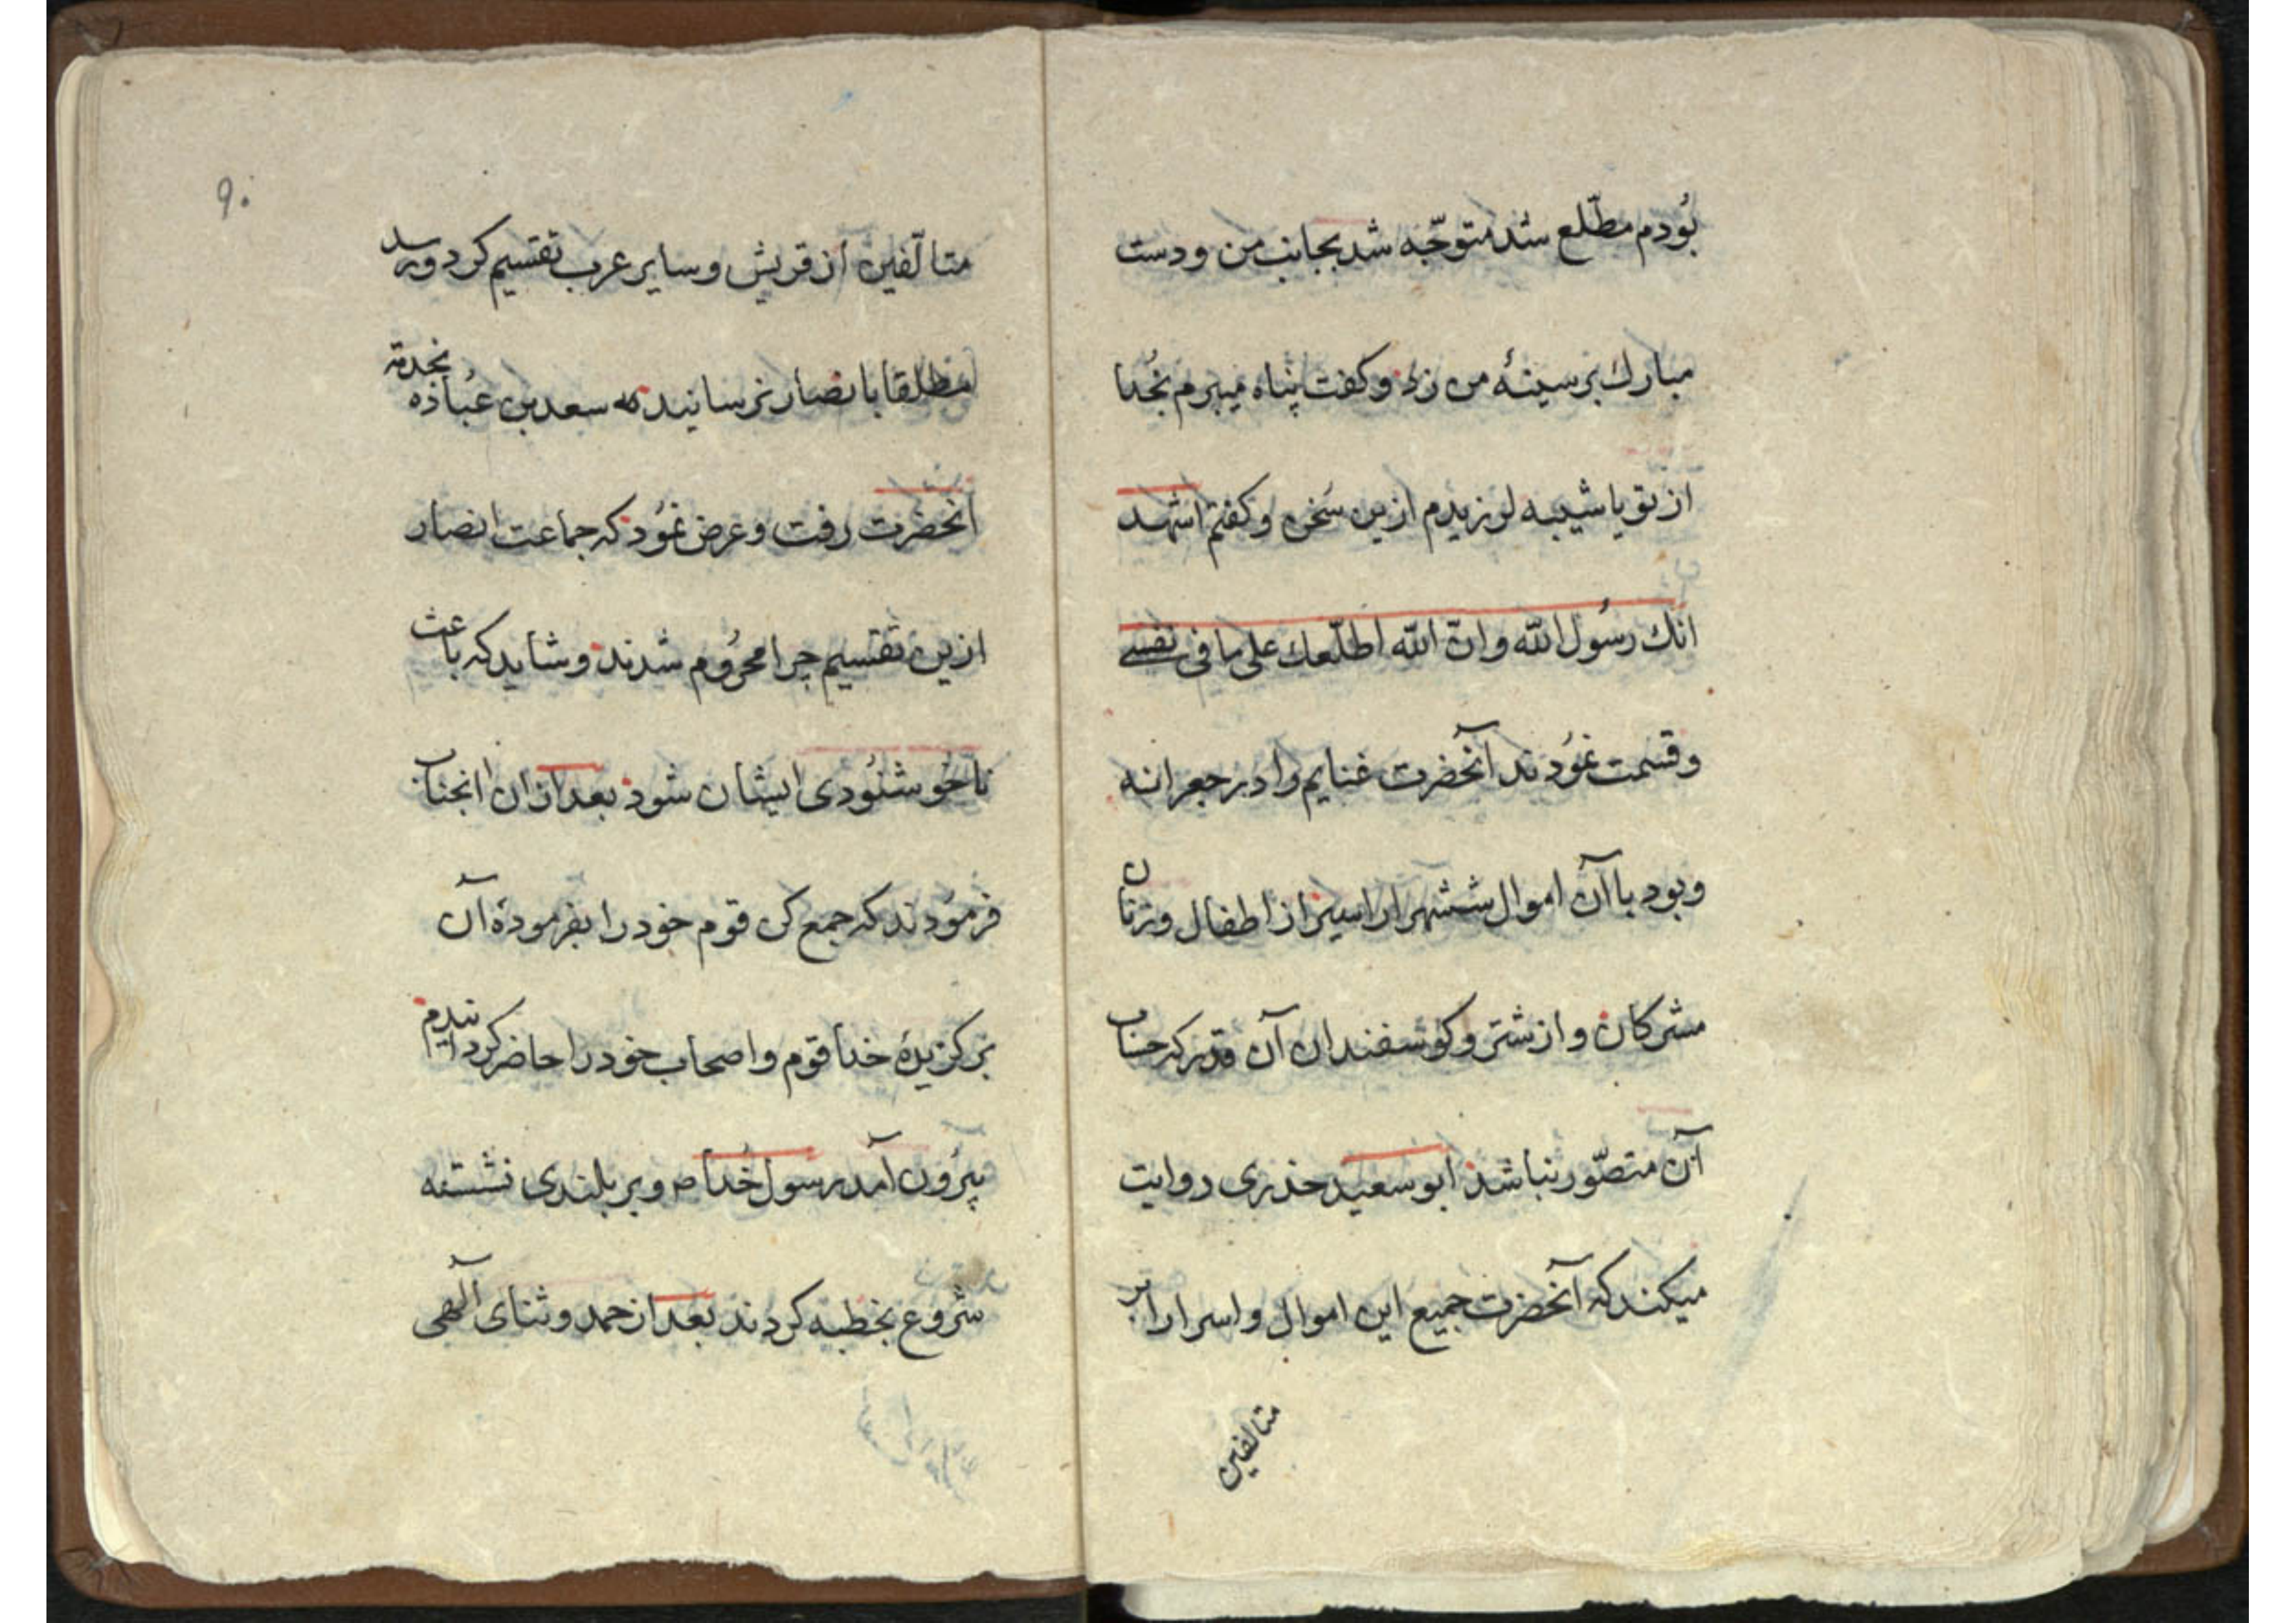 بُودم مطّلع شد متوجّه شد بجانب من و دست
مبارك بر سینهٔ من زد و کفت پناه میبرم بخُدا
از تو یا شیبه لرزیدم ازین سُخن و کفتم اشهد
انّك رسُول الله و انّ الله اطلّعك علی ما فی نفسے
و قسمت نمُودند آنحضرت غنایم را در جعرانه
و بود با آن اموال ششهزار اسیر از اطفال و زنان
مشرکان و از شتر و کوسفندان آن قدر که حساب
آن متصّور نباشد ابو سعید خدری روایت
میکند که آنحضرت جمیع این اموال و اسرا را بر
متالفین
۹۰
متالّفین از قریش و سایر عرب تقسیم کرد و رسد
مطلقا بانصار نرسانیدند که سعد بن عُباده بخدمة
آنحضرت رفت و عرض نمُود که جماعت انصار
ازین تقسیم چرا محرُوم شدند و شاید که باعث
ناخوشنُودی ایشان شود بعد از ان انجناب
فرمُودند که جمع کن قوم خود را بفرمودهٔ آن
برکزیدهٔ خدا قوم و اصحاب خود را حاضر کردانیدم
بیرُون آمد رسول خُدا ص و بر بلندی نشسته
شروع بخطبه کردند بعد از حمد و ثنای آلهی